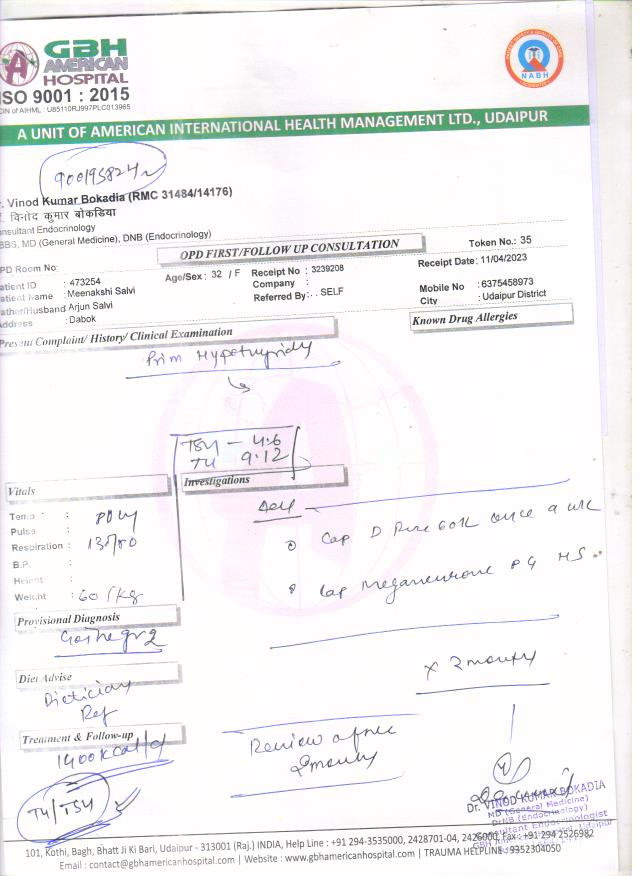 GBH
AMERICAN
HOSPITAL
ISO 9001 : 2015
CIN of AIHML : U85110RJ997PLC013965
NABH
A UNIT OF AMERICAN INTERNATIONAL HEALTH MANAGEMENT LTD., UDAIPUR
r. Vinod Kumar Bokadia (RMC 31484/14176)
विनोद कुमार बोकडिया
onsultant Endocrinology
BBS, MD (General Medicine), DNB (Endocrinology)
OPD FIRST/FOLLOW UP CONSULTATION
Token No.: 35
PD Room No:
Receipt Date: 11/04/2023
atient ID : 473254
Age/Sex : 32 / F
Receipt No : 3239208
Mobile No : 6375458973
atient Name : Meenakshi Salvi
Company :
City : Udaipur District
ather/Husband Arjun Salvi
Referred By: . . SELF
Address : Dabok
Known Drug Allergies
Present Complaint/ History/ Clinical Examination
Prim
TSH - 4.6
T4 9.12
Vitals
Investigations
Adv
Temp :
Pulse :
Respiration : 130/80
Cap D 60K once a wk
B.P. :
Height :
Cap Meganeurone PG HS
Weight : 60 /kg
Provisional Diagnosis
Diet Advise
x 2 months
Dietician
Ref
Treatment & Follow-up
1400 kcal/d
Review after
2 months
T4/TSH
Dr. VINOD KUMAR BOKADIA
MD (General Medicine)
DrNB (Endocrinology)
Consultant Endocrinologist
101, Kothi, Bagh, Bhatt Ji Ki Bari, Udaipur - 313001 (Raj.) INDIA, Help Line : +91 294-3535000, 2428701-04, 2426000, Fax : +91 294 2526982
Email : contact@gbhamericanhospital.com | Website : www.gbhamericanhospital.com | TRAUMA HELPLINE : 9352304050